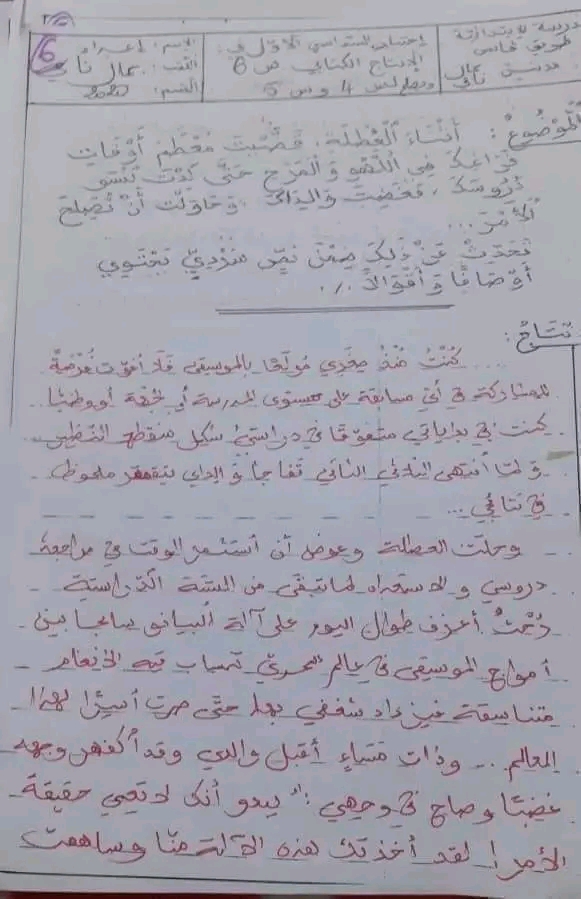 مدرسة الابتدائية
طريق فاس
إختبار السداسي الأول في:
الإنتاج الكتابي ص 6
الإسم:
اللقب:
القسم:
6
الموضوع: أثناء العطلة، قضيت معظم أوقات
فراغك في اللهو و المرح حتى كدت تنسى
دروسك، فغضب والداك، وحاولت أن تصلح
الأمر...
تحدث عن ذلك ضمن نص سردي يحتوي
أوصافا و أقوالا ./.
نتاج:
.... كنت منذ صغري مولعا بالموسيقى فلا أفوت فرصة
للمشاركة في أي مسابقة على مستوى المدرسة أو الجهة أو وطنيا..
كنت في بداياتي متفوقا في دراستي بشكل منقطع النظير..
و لما انتهى الثلاثي الثاني تفاجأ والداي بتقهقر ملحوظ
في نتائجي...
وحلت العطلة وعوض أن أستثمر الوقت في مراجعة
دروسي و الاستعداد لما تبقى من السنة الدراسية
رحت أعزف طوال اليوم على آلة البيانو سابحا بين
أمواج الموسيقى في عالم سحري تنساب فيه الأنغام
متناسقة فيزداد شغفي بها حتى صرت أسيرا لهذا
العالم ... وذات مساء أقبل والدي وقد اكفهر وجهه
غضبا وصاح في وجهي: " يبدو أنك لا تعي حقيقة
الأمر! لقد أخذتك هذه الآلة منا وساهمت